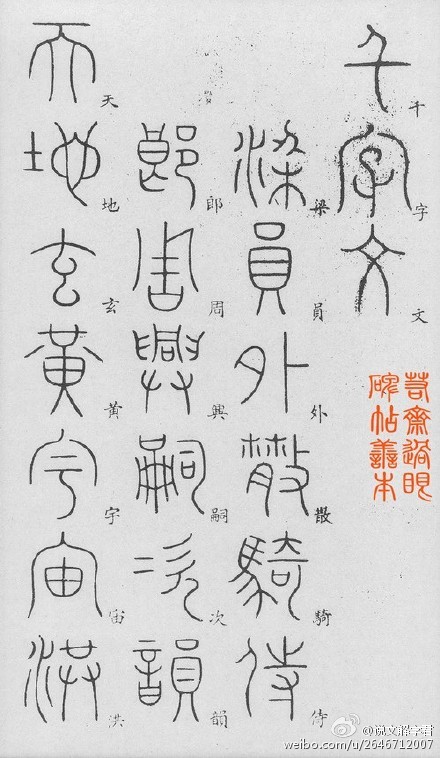 千字文
梁員外散騎侍
郎周興嗣次韻
天地玄黃宇宙洪
千字文
梁員外散騎侍
郎周興嗣次韻
天地玄黃宇宙洪
過眼
碑帖善本
weibo.com/u/2646712007